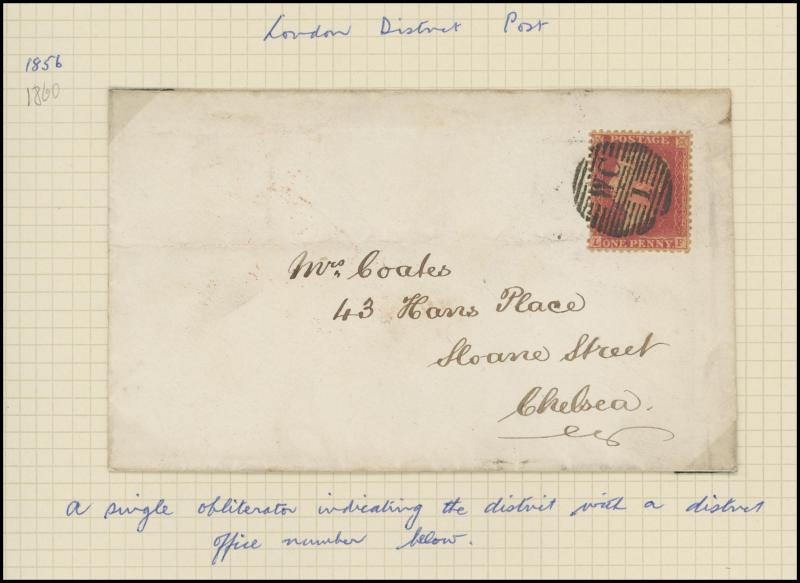 London District Post
1856
1860
POSTAGE
WC
1
L ONE PENNY F
Mrs Coates
43 Hans Place
Sloane Street
Chelsea.
A single obliterator indicating the district with a district
office number below.